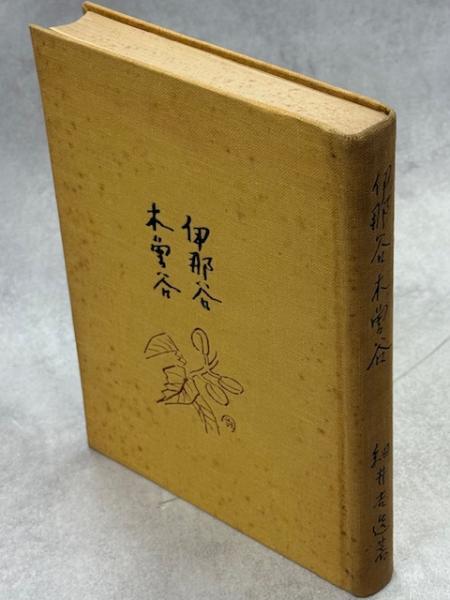 伊那谷
木曽谷
伊那谷木曽谷
細井吉造著